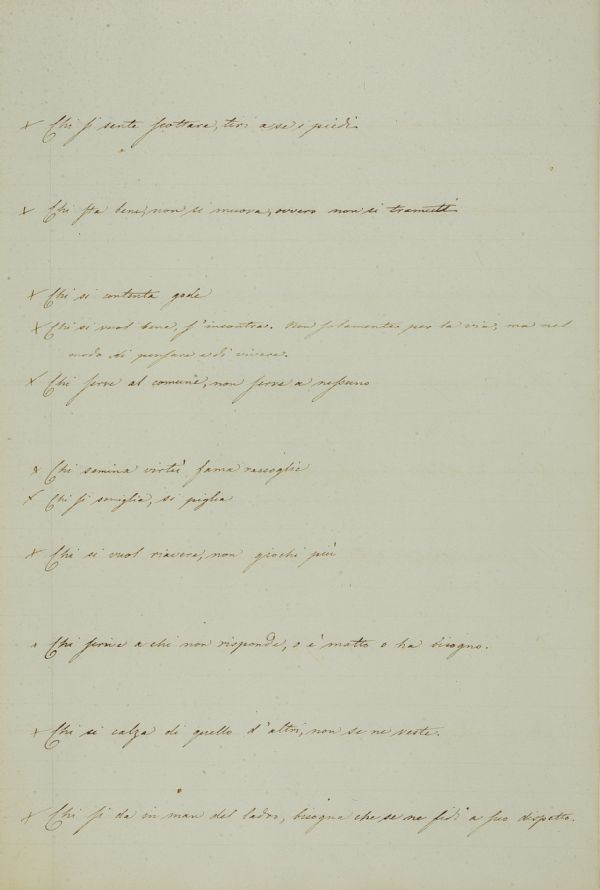 x Chi si sente scottare, tiri a se i piedi
x Chi sta bene, non si muova, ovvero non si tramuti
x Chi si contenta gode
x Chi si vuol bene s'incontra. Non solamente per la via, ma nel
modo di pensare e di vivere.
x Chi serve al comune, non serve a nessuno
x Chi semina virtù fama raccoglie
x Chi si somiglia, si piglia
x Chi si vuol riavere, non giochi più
x Chi scrive a chi non risponde, o è matto o ha bisogno.
x Chi si calza di quello d'altri, non se ne veste.
x Chi si da in man del ladro, bisogna che se ne fidi a suo dispetto.